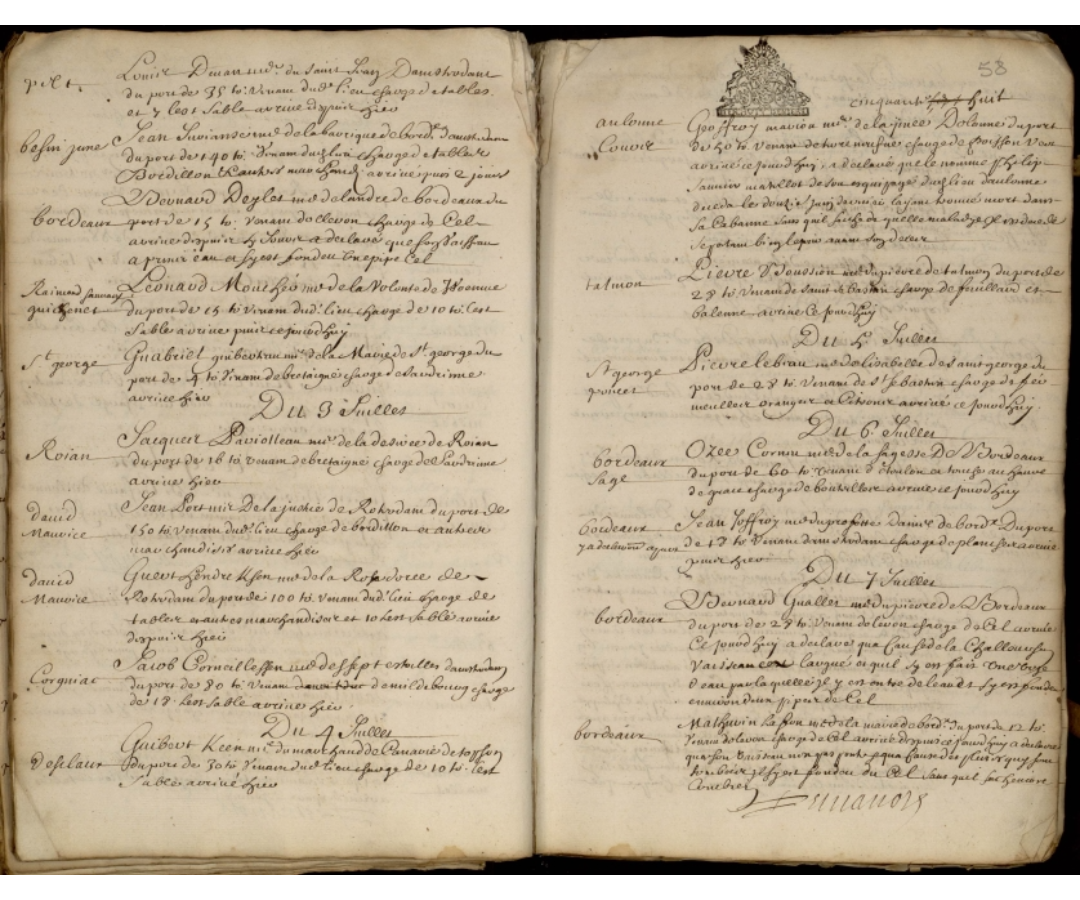 pelt.
Louis Dman me. du Saint Jean Damstredam
du port de 35 to. Venam dud. lieu charge de tables
et 7 lest sable arrive depuis hier
besin jeune
Jean me de la barrique de bord. Damsterdam
du port de 140 to. Venam dud. lieu charge de tables
Bordillon & autres marchand. arrive puis 2 jours
bordeaux
Bernard Deyles me de landre de bordeaux du
port de 15 to. Venam de charge de Cel
arrive depuis hier a declaré que son Vaisseau
a prins eau et sy est fondeu une pipe Cel
Raimond sauvage
guichenet
Leonard Mouché me de la Volonte de
du port de 15 to Venam dud. lieu charge de 10 to. lest
sable arrive puis ce jourdhuy
St. george
Guabriel me. de la Marie de St george du
port de 4 to Venam de bretaigne charge de Saudrime
arrive hier
Du 3 Juillet
Roian
Jacques Daviotteau me. de la desirée de Roian
du port de 16 to Venam de bretaigne charge de Saudrime
arrive hier
david
Maurice
Jean Port me De la justice de Rotrodam du port de
150 to. Venam dud. lieu charge de bordillon et autres
marchandises arrive hier
david
Maurice
Guert Hendrekson me de la Rose doree de
Rotrodam du port de 100 to. Venam dud. lieu charge de
tables et autres marchandises et 10 lest sable arrivé
depuis hier
Corgniac
Jacob Corneilessen me des sept estoilles damsterdam
du port de 80 to. Venam de mildebourg charge
de 18 lest sable arrive hier.
Du 4 Juillet
deselaux
Guibert Keen me. du marchand de Canarie de
du port de 30 to Venam dud. lieu charge de 10 to. lest
sable arrivé hier
58
cinquante huit
aulonne
Couvoir
Geoffroy marion me. de la Dolonne du port
de 50 to Venam de terre neufve charge de Poisson vert
arrive ce jourdhuy, a declaré que le nomme philip
saunier matellot de son equipage dud. lieu daulonne
deceda le douzie Juin dernier layant trouvé mort dans
sa Cabanne sans quil sache de quelle maladye
se portant bien le jour avant son deces
talmon
Pierre Boussion me du pierre de talmon du port de
28 to Venam de Saint Sebastian charge de feuillard et
balenne arrive ce jourdhuy
Du 5 Juillet
St george
poncet
Pierre lebrau me de lisabelle de Saint george du
port de 28 to. Venam de St Sebastien charge de fer
meulles oranges et Citrons arrivé ce jourdhuy.
Du 6 Juillet
bordeaux
sage
Ozee Cornu me de la sagesse De Bordeaux
du port de 60 to Venam de toulon et touche au havre
de grace charge de bouteilles arrive ce jourdhuy
bordeaux
Jean Joffroy me du prophette Daine. de bord. Du port
de 18 to. Venam Damsterdam charge de planches arrive
puis hier
Du 7 Juillet
bordeaux
Bernard Gualles me du pierre de Bordeaux
du port de 28 to Venam de charge de Cel arrivé
Ce jourdhuy a declaré que Cause de la Challeur son
Vaisseau est et quil sy est fait une voye
deau par laquelle il y est entre de leau et sy est fondeu
environ deux pipes de Cel
bordeaux
Mathurin Laffon me de la marie de bord. du port de 12 to.
Venam de charge de Cel arrive depuis ce jourdhuy a declaré
que son Vaisseau
sy est fondeu du Cel sans quil sache encore
Combien